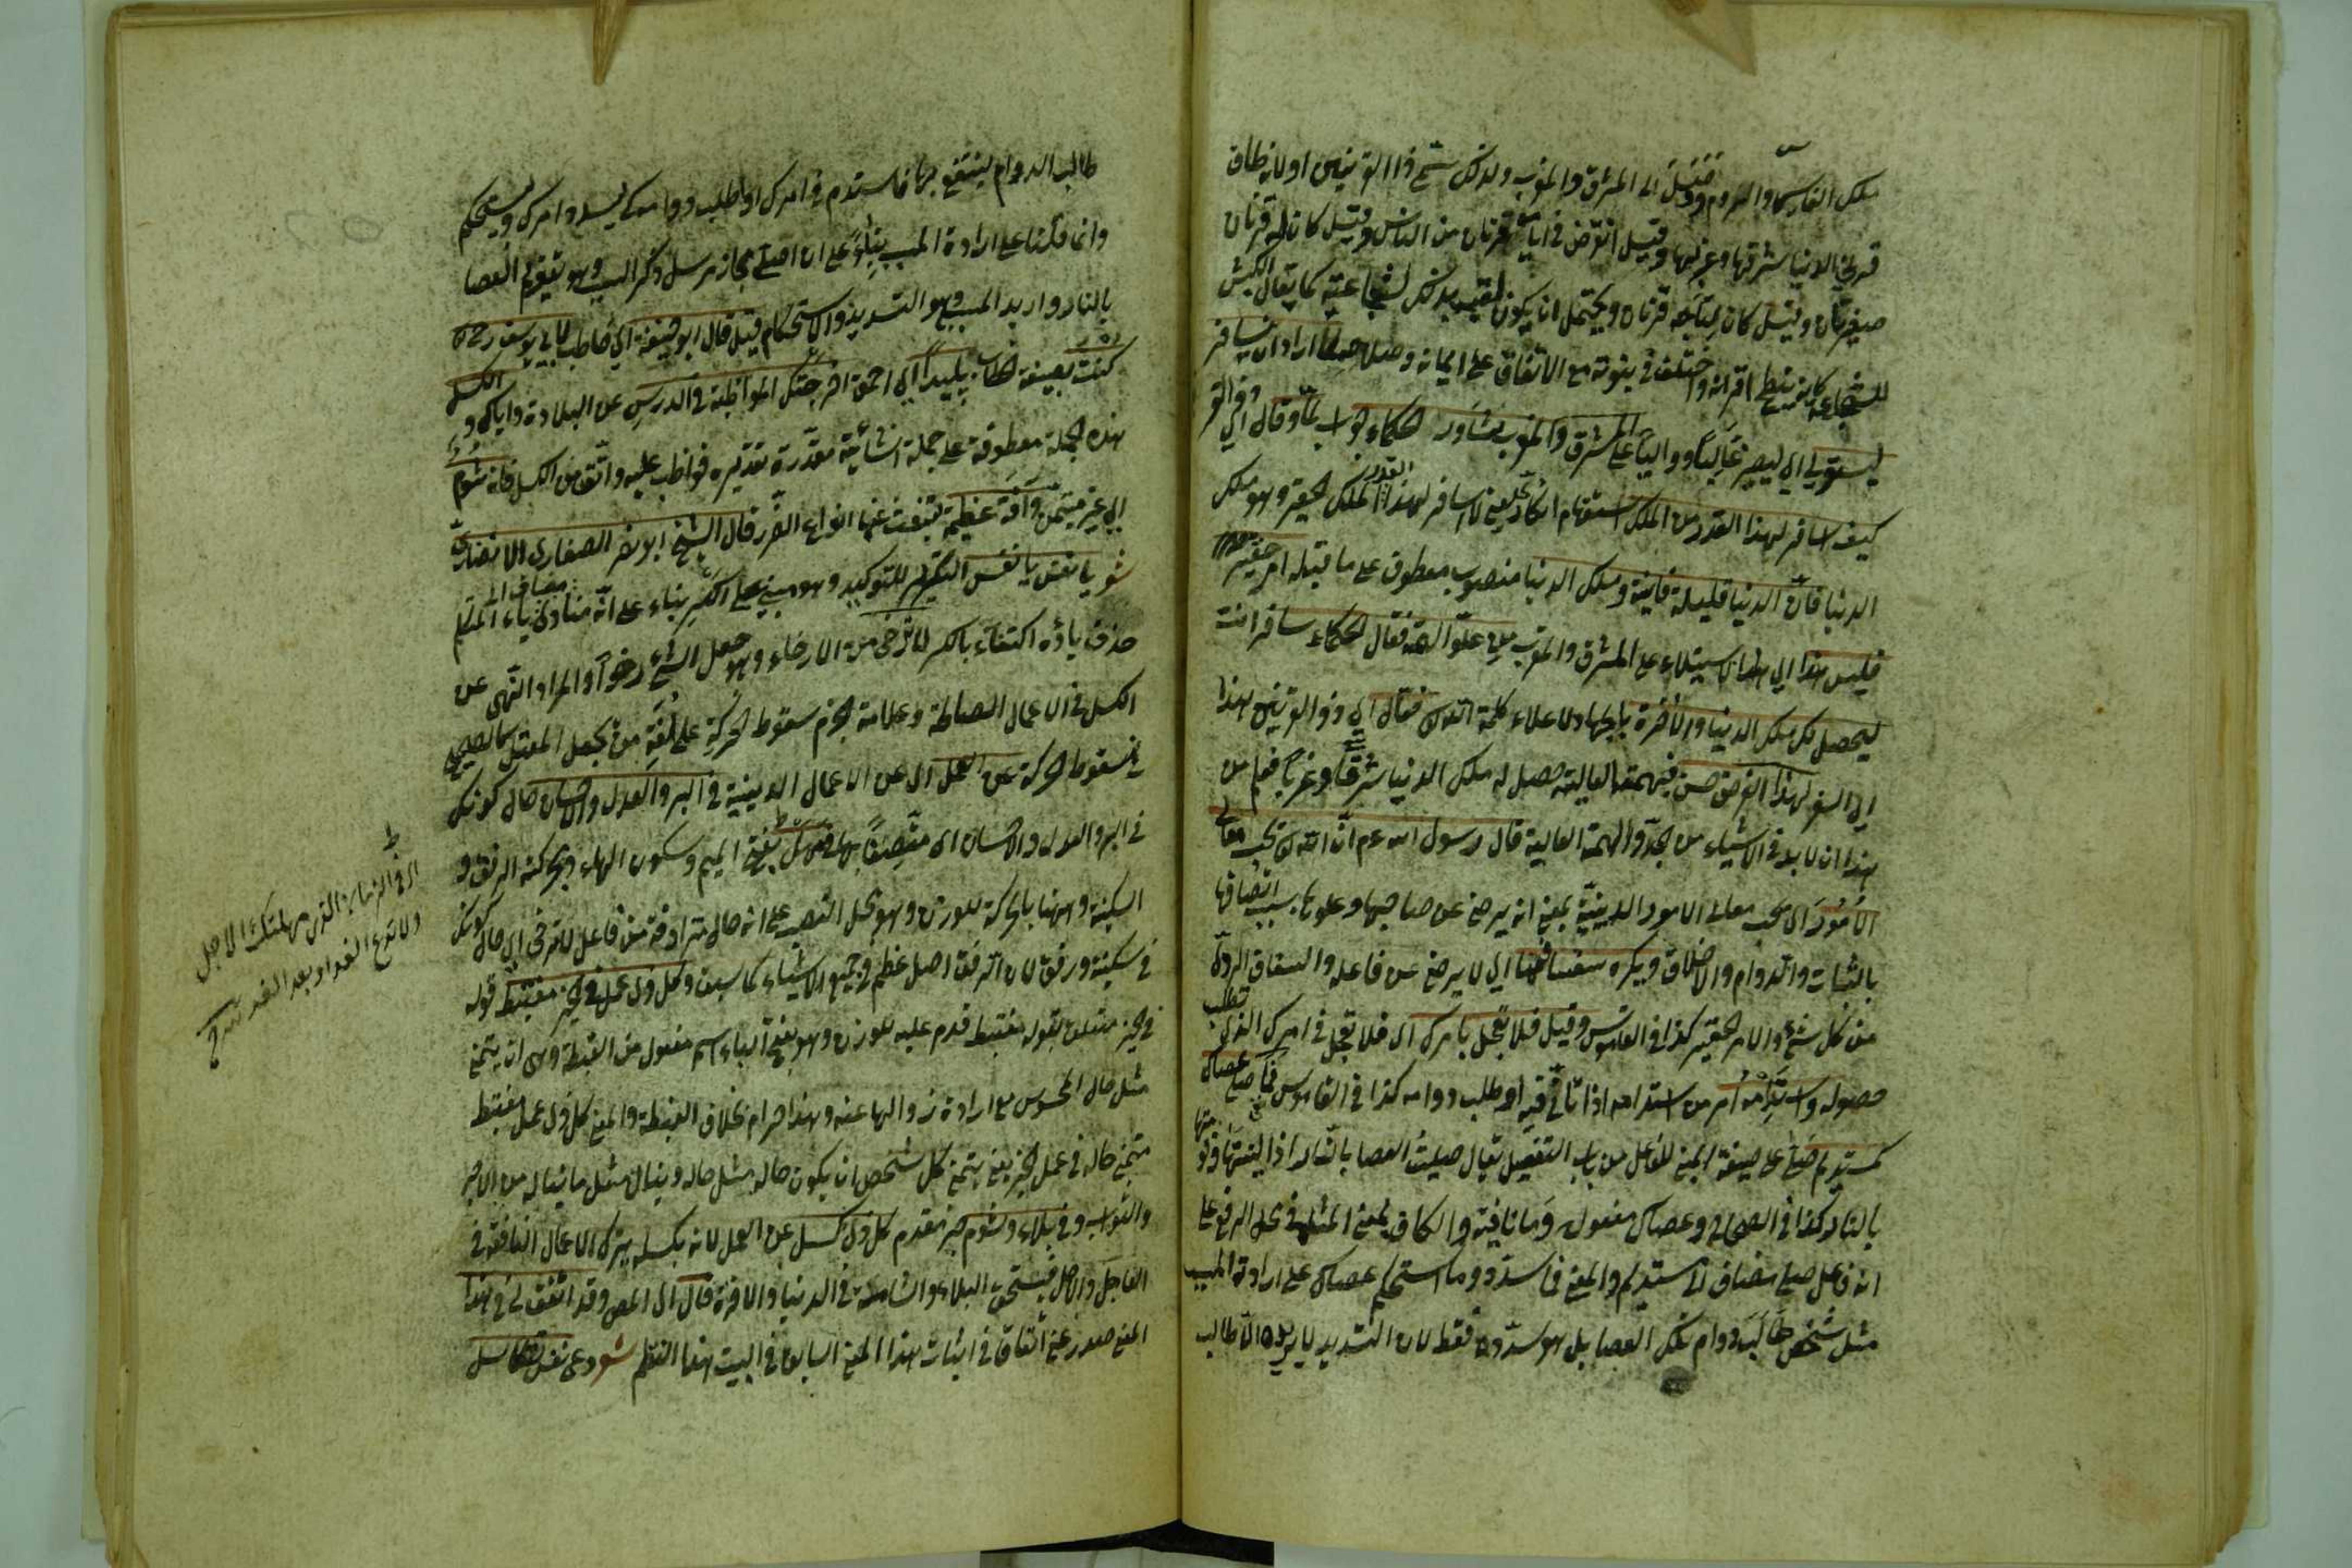 ملك الفارس والروم وقيل الى المشرق والمغرب ولذلك سمى ذا القرنين او لانه طاف
قرنى الدنيا شرقها وغربها وقيل انقرض فى ايامه قرنان من الناس وقيل كان له قرنان
صغيرتان وقيل كان لتاجه قرنان ويحتمل ان يكون لقب بذلك لشجاعته كما يقال الكبش
للشجاع كانه ينطح اقرانه واختلف فى نبوته مع الاتفاق على ايمانه وصلاحه لما اراد ان يسافر
ليستولى اى ليصير غالبا وواليا على المشرق والمغرب شاور الحكماء جواب لما وقال اى ذو القر
كيف اسافر لهذا القدر من الملك استفهام انكارى يعنى لا اسافر لهذا الملك القدر الحقير وهو ملك
الدنيا فان الدنيا قليلة فانية وملك الدنيا منصوب معطوف على ما قبله امر حقير
فليس هذا اى الاستيلاء على المشرق والمغرب من علو الهمة فقال الحكماء سافر انت
ليحصل لك ملك الدنيا والآخرة بالجهاد لاعلاء كلمة الله فقال اى ذو القرنين هذا
اى السفر لهذا الغرض حسن فبهمته العالية حصل له ملك الدنيا شرقا وغربا فعلم من
هذا ان لا بد فى الاشياء من الجد والهمة العالية قال رسول الله عم ان الله يحب معالى
الامور اى يحب معالى الامور الدينية بمعنى انه يرضى عن صاحبها وعلوها بسبب اتصافها
بالثبات والدوام والاخلاق ويكره سفسافها اى لا يرضى عن فاعله والسفاف الردى
من كل شئ والامر الحقير كذا فى القاموس وقيل فلا تعجل بامرك اى فلا تعجل فى امرك الذى تطلب
حصوله واستدمه امر من استدامه اذا تأنى فيه او طلب دوامه كذا فى القاموس فما صلى عصاك
كمستديم صلى على صيغة المبنى للفاعل من باب التفعيل يقال صليت العصا بالنار اذا لينتها وقومتها
بالنار كذا فى الصحاح وعصاك مفعوله وما نافية والكاف بمعنى المثل فى محل الرفع على
انه فاعل صلى مضاف الى مستديم والمعنى فما سدد وما استحكم عصاك على ارادة المسبب
مثل شخص طالب دوام تلك العصا بل هو سدده فقط لان التسديد لا يريده الا طالب
طالب الدوام لينتفع بها فاستدم فى امرك او اطلب دوامه كى يسدد امرك ويستحكم
وانما فكرنا على ارادة المسبب بناء على ان اصلى مجاز مرسل ذكر السبب وهو تقويم العصا
بالنار واريد المسبب وهو التسديد والاستحكام قيل قال ابو حنيفة اى خاطب لابى يوسف رحمه
كنت بصيغة الخطاب بليدا اى احمق اخرجتك المواظبة فى الدرس عن البلادة واياك و الكسل
هذه الجملة معطوفة على جملة انشائية مقدرة تقديره فواظب عليه واتق من الكسل فانه شوم
اى غير متيمن وآفة عظيمة تنبعث عنها انواع الضرر قال الشيخ ابو نصر الصفارى الانصارى
شو يا نفس يا نفس التكرير للتوكيد وهو مبنى على الكسر بناء على انه منادى مضاف الى ياء المتكلم
حذف ياؤه اكتفاء بالكسر لا ترخى من الارخاء وهو جعل الشئ رخوا والمراد النهى عن
الكسل فى الاعمال الصالحة وعلامة الجزم سقوط الحركة على لغة من يجعل المعتل كالصحيح
فى سقوط الحركة عن العمل اى عن الاعمال الدينية فى البر والعدل والاحسان حال كونك
فى البر والعدل والاحسان اى متصفا بها فى مهل بفتح الميم وسكون الهاء وبحركته الرفق و
السكينة وههنا بالحركة للوزن وهو محل النصب على انه حال مترادفة من فاعل لا ترخى اى حال كونك
فى سكينة ورفق لان الرفق اصل عظيم فى جميع الاشياء كما سبق وكل ذى عمل فى الخير مغتبط قوله
فى الخير متعلق بقوله مغتبط قدم عليه للوزن وهو بفتح الباء اسم مفعول من الغبطة وهى ان يتمنى
مثل حال المحسود من ارادة زوالها عنه وهذا حرام بخلاف الغبطة والمعنى كل ذى عمل مغتبط
متمنى حاله فى عمل الخير يعنى يتمنى كل شخص ان يكون حاله مثل حاله وينال مثل ما يناله من الاجر
والثواب وفى بلاء وشوم خبر مقدم كل ذى كسل عن العمل لانه بكسله يترك الاعمال النافعة فى
العاجل والآجل فيستحق البلاء والشامة فى الدنيا والآخرة قال اى المص وقد اتفق لى فى هذا
المعنى صدر عنى اتفاقا فى اثبات هذا المعنى السابق فى البيت هذا النظم شو دعى نفسى التكاسل
ولا تدع الغد او بعد الغد شرح